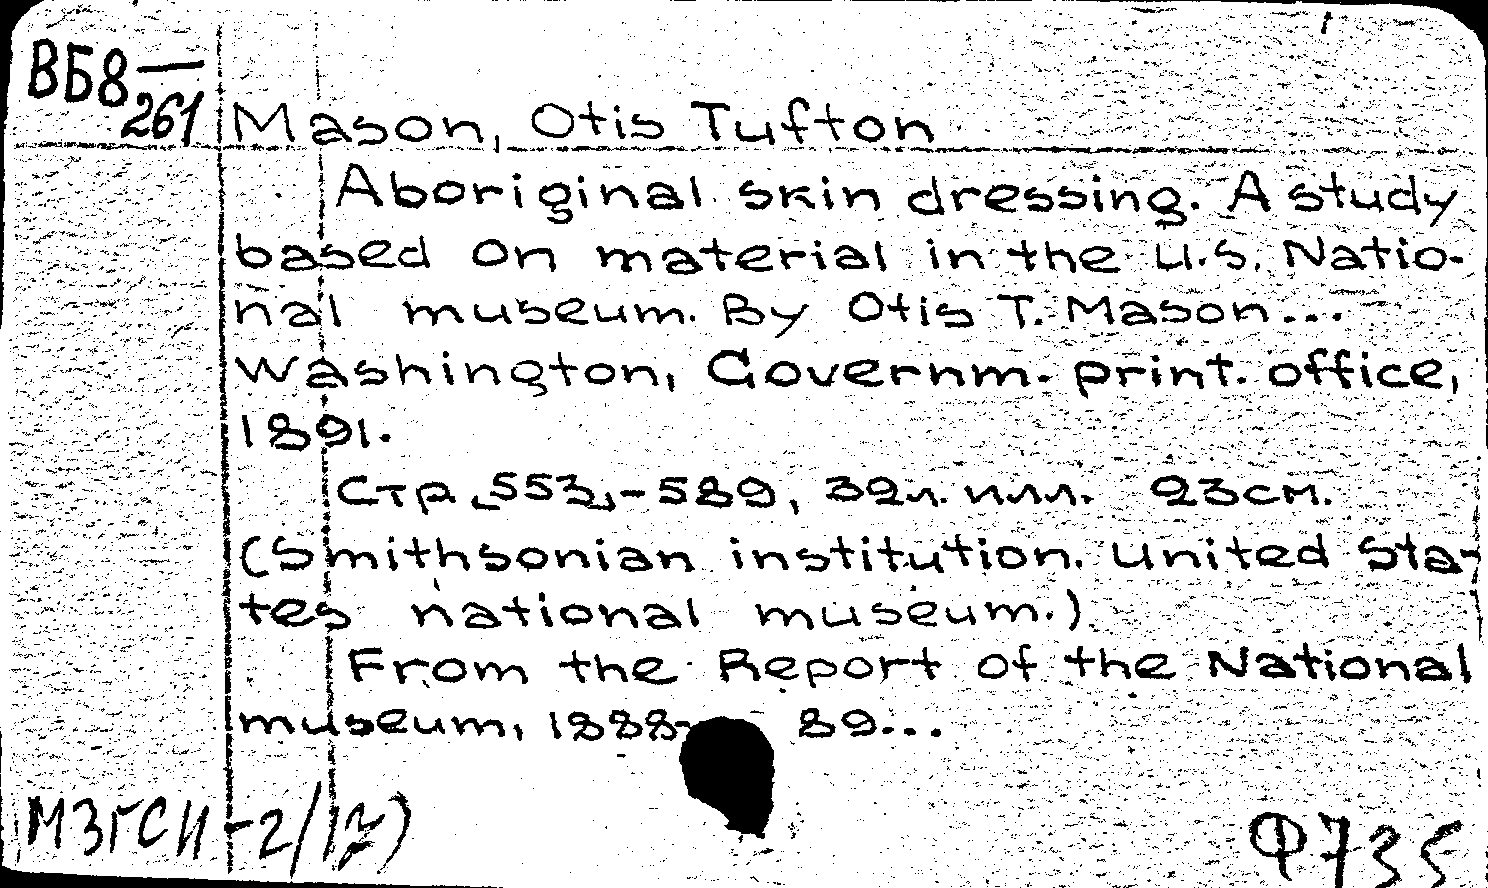 ВБ8—
261
Mason, Otis Tufton
Aboriginal skin dressing. A study
based on material in the U.S. Natio-
nal museum. By Otis T. Mason...
Washington, Governm. print. office,
1891.
Стр. [553]-589, 32л. илл. 23см.
(Smithsonian institution. United Sta-
tes national museum.)
From the Report of the National
museum, 1888- 89...
МЗГСИ-2/17)
Ф735